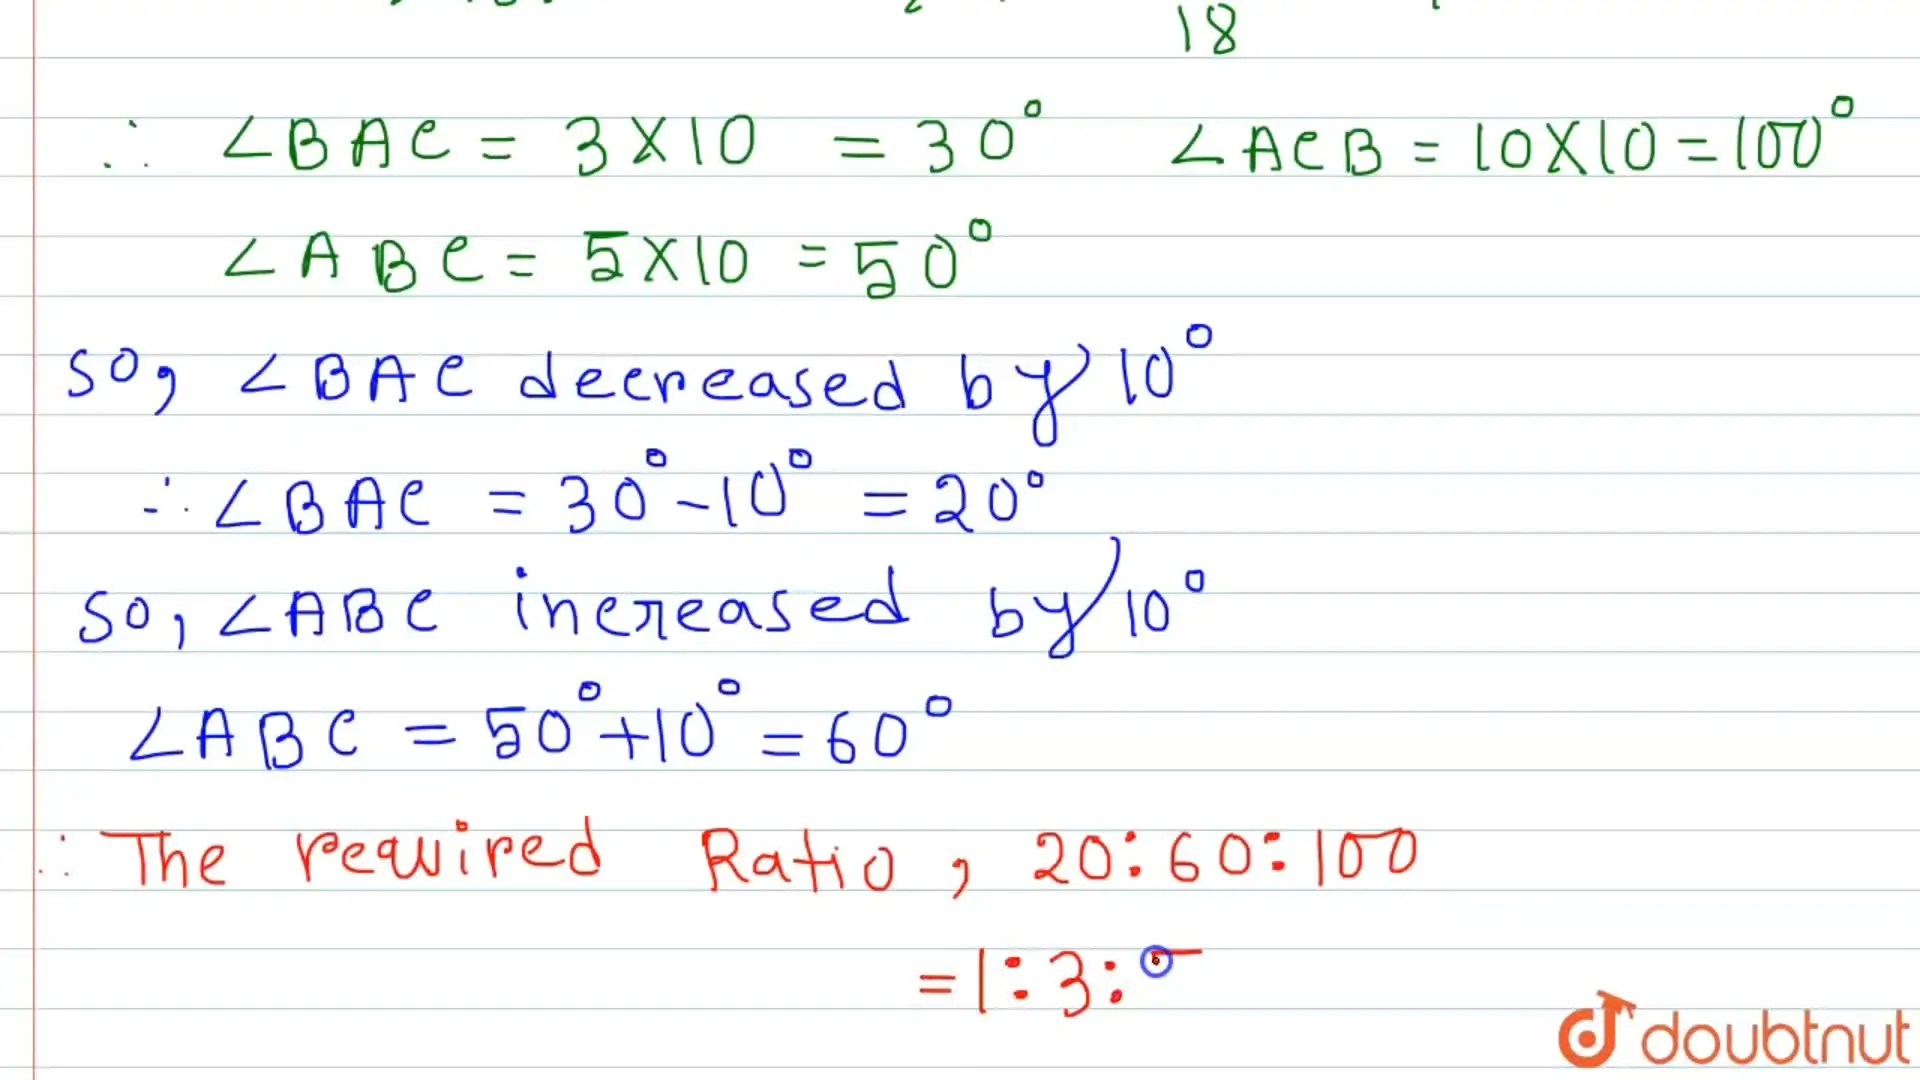 18
∴ ∠BAC = 3×10 = 30° ∠ACB = 10×10 = 100°
∠ABC = 5×10 = 50°
so, ∠BAC decreased by 10°
∴ ∠BAC = 30° - 10° = 20°
so, ∠ABC increased by 10°
∠ABC = 50° + 10° = 60°
∴ The required Ratio, 20:60:100
= 1:3:
doubtnut